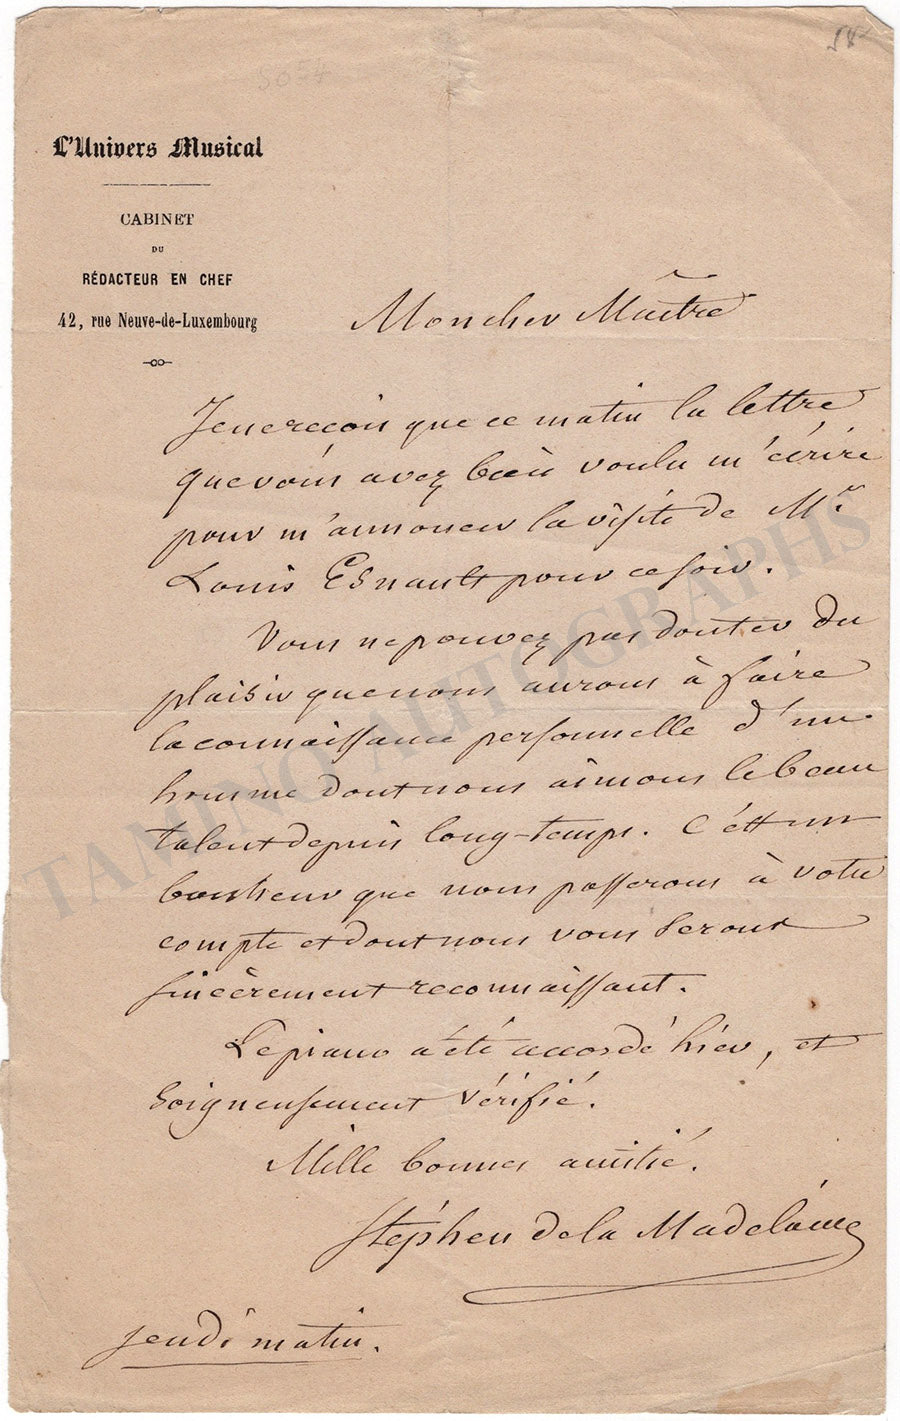 58
5054
L'Univers Musical
CABINET
DU
RÉDACTEUR EN CHEF
42, rue Neuve-de-Luxembourg
Mon cher Maître
Je ne reçois que ce matin la lettre
que vous avez bien voulu m'écrire
pour m'annoncer la visite de Mr
Louis Esnault pour ce soir.
Vous ne pouvez pas douter du
plaisir que nous aurons à faire
la connaissance personnelle d'un
homme dont nous aimons le beau
talent depuis long-temps. C'est un
bonheur que nous passerons à votre
compte et dont nous vous serons
sincèrement reconnaissant.
Le piano a été accordé hier, et
soigneusement vérifié.
Mille bonnes amitié.
Stéphen de la Madelaine
jeudi matin.
TAMINO AUTOGRAPHS